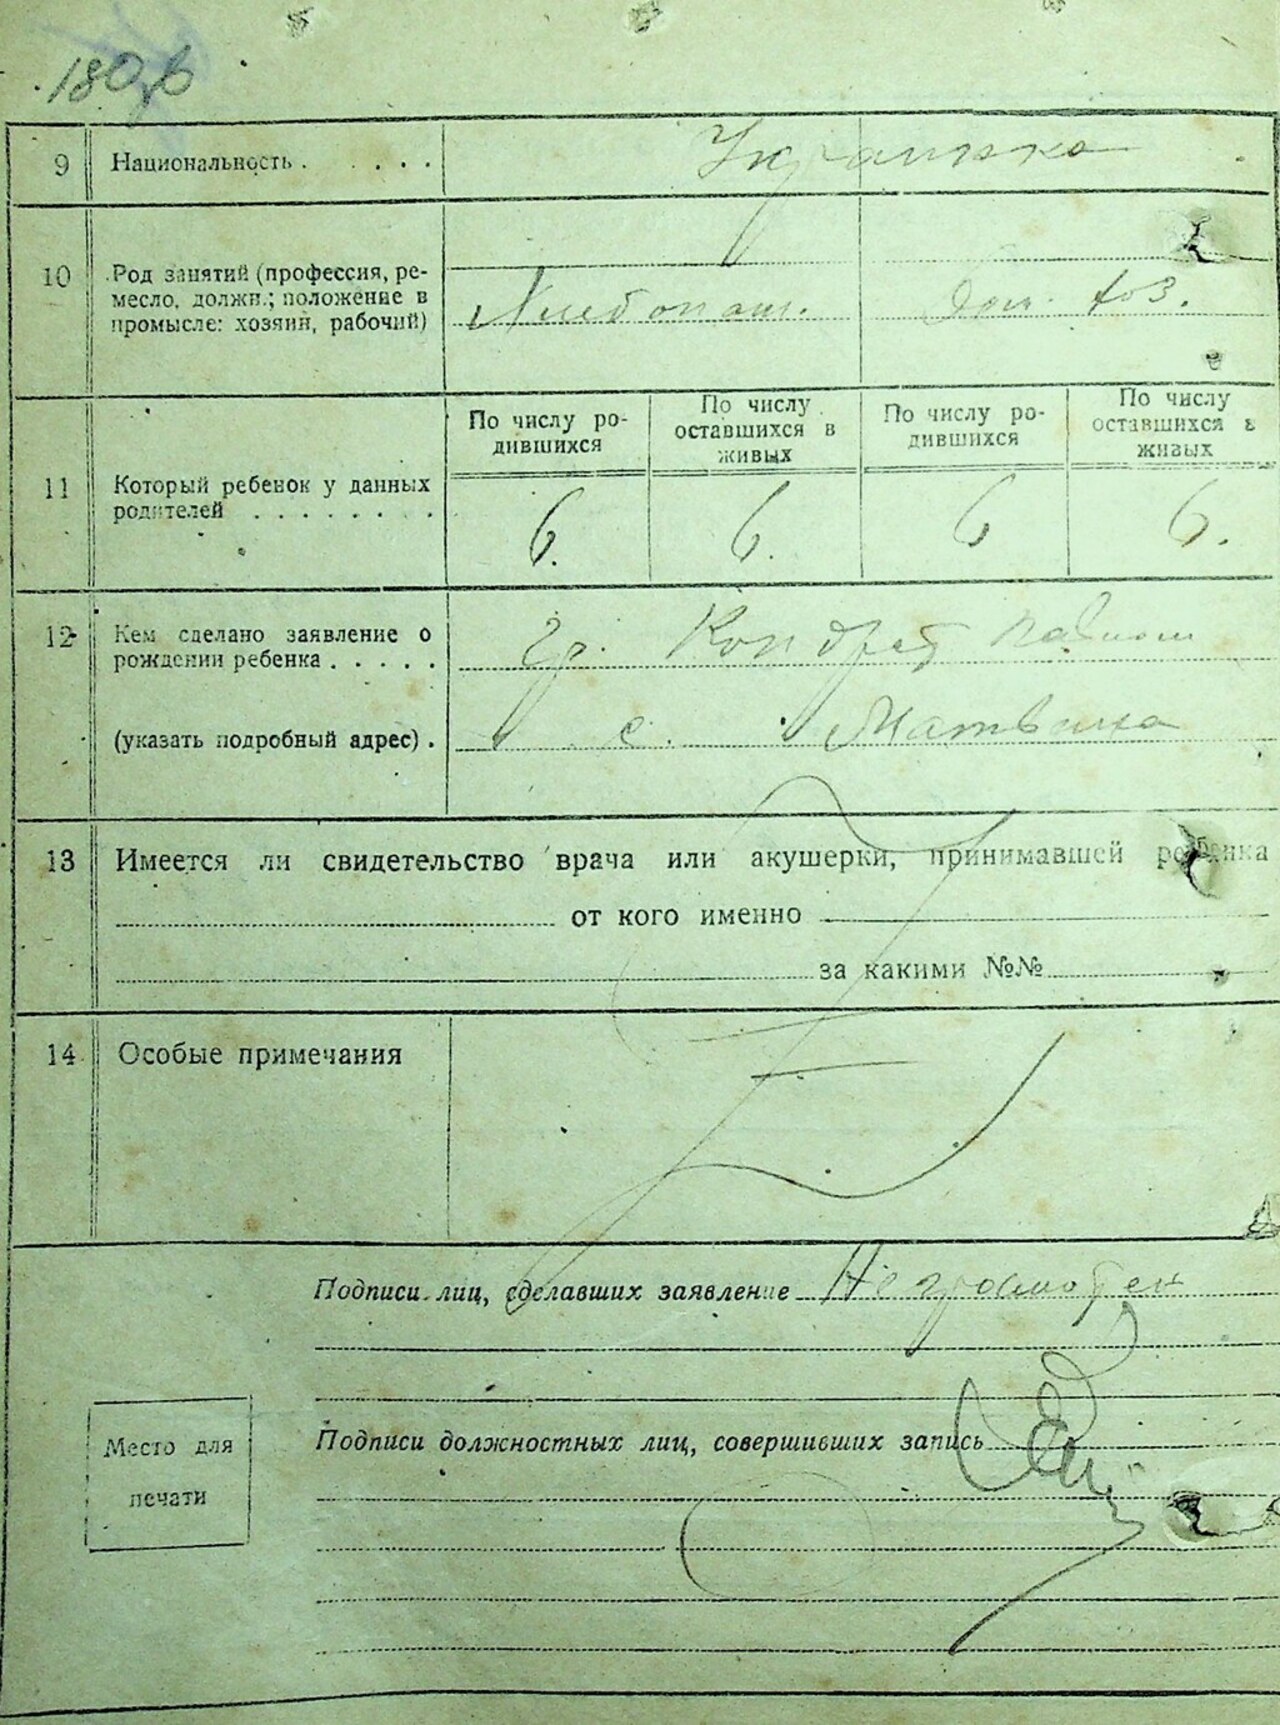 9 Национальность . . . . . Украинка
10 Род занятий (профессия, ре-
месло, должн.; положение в
промысле: хозяин, рабочий)
Хлебопаш. Дом. хоз.
По числу ро-
дившихся
По числу
оставшихся в
живых
По числу ро-
дившихся
По числу
оставшихся в
живых
11 Который ребенок у данных
родителей . . . . . . . .
6. 6. 6 6.
12 Кем сделано заявление о
рождении ребенка . . . . .
гр. Кондрат
(указать подробный адрес) .
с.
13 Имеется ли свидетельство врача или акушерки, принимавшей ребенка
от кого именно
за какими №№
14 Особые примечания
Подписи лиц, сделавших заявление Неграмотен
Подписи должностных лиц, совершивших запись
Место для
печати